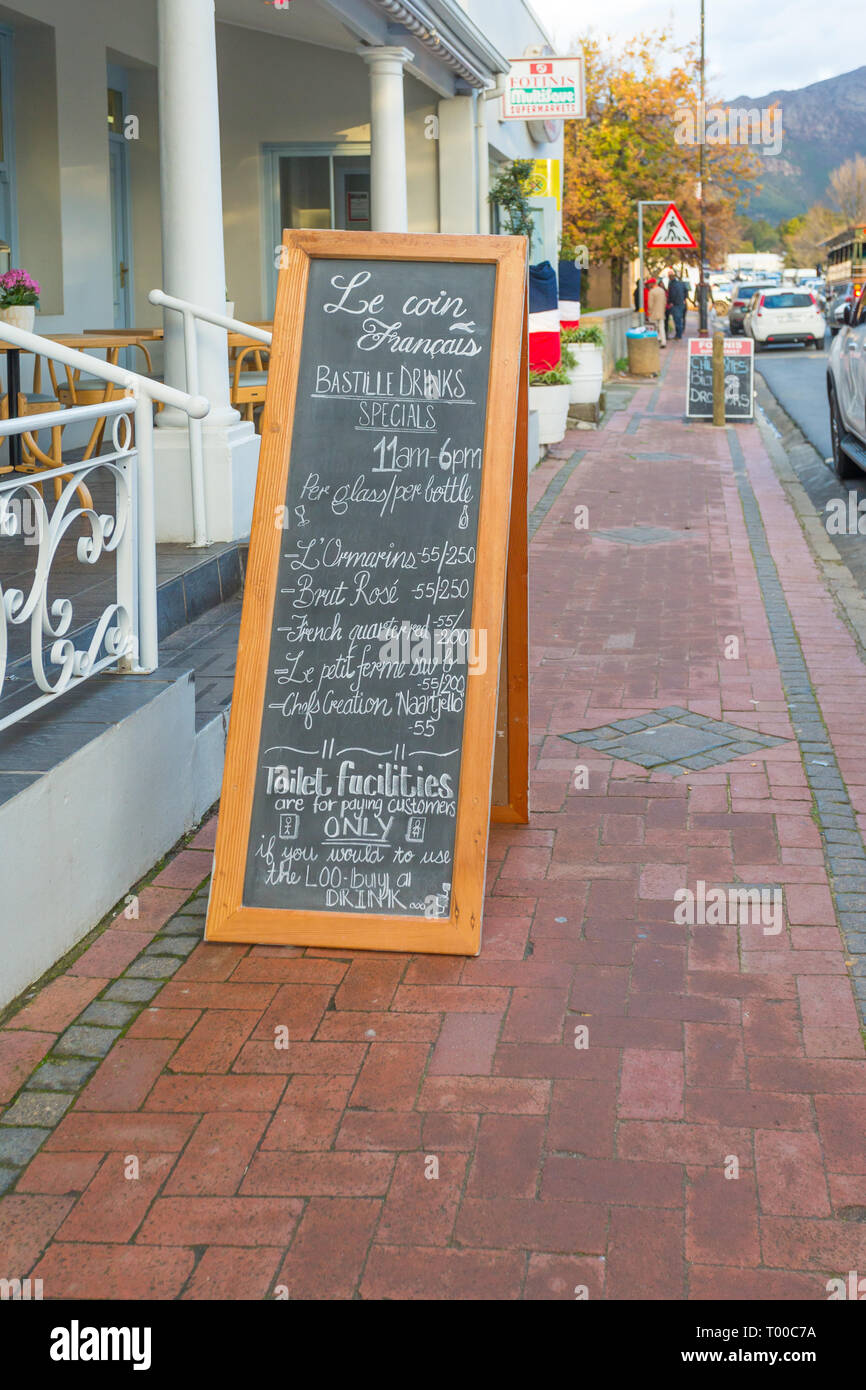 Le coin
Français
BASTILLE DRINKS
SPECIALS
11am-6pm
Per glass/per bottle
-L'Ormarins -55/250
-Brut Rosé -55/250
-French quarter red -55/
200
-Le petit ferme
-55/200
-Chefs Creation 'Naartjello'
-55
Toilet facilities
are for paying customers
ONLY
if you would to use
the LOO-buy a
DRINK...
FOTINIS
MultiSave
SUPERMARKETS
FOTINIS
BILTONG
DROËWORS
alamy
Image ID: T00C7A
www.alamy.com